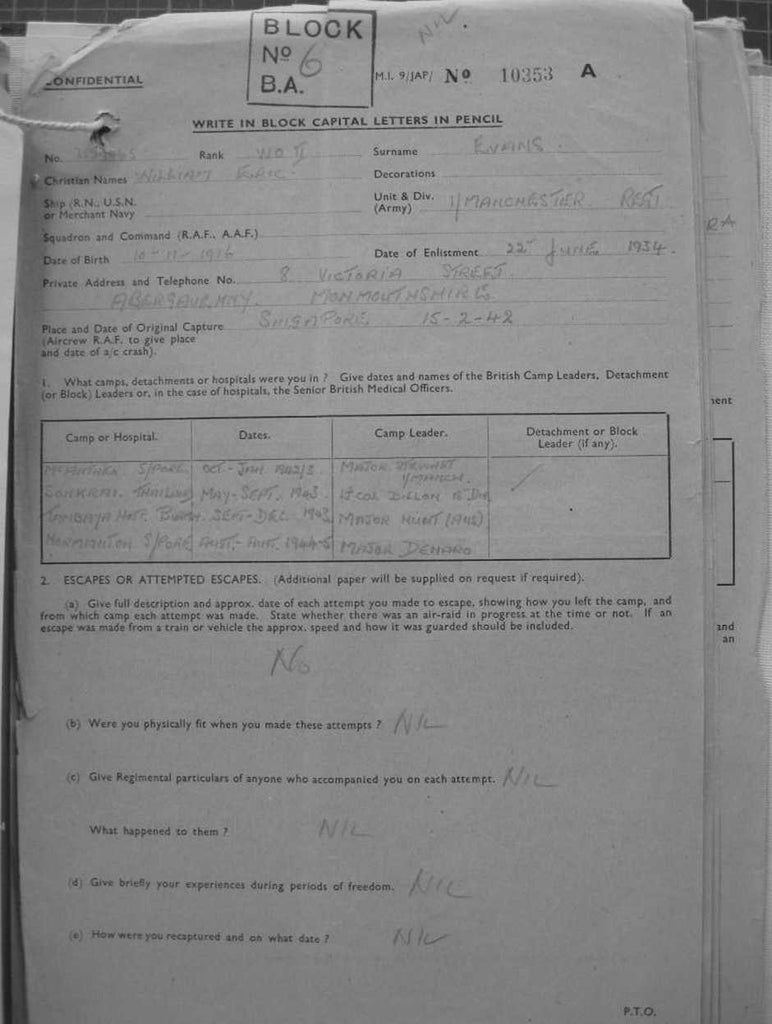 BLOCK
Nº 6
B.A.
NIL
CONFIDENTIAL
M.I. 9/JAP/ Nº 10353 A
WRITE IN BLOCK CAPITAL LETTERS IN PENCIL
No. Rank WO II Surname EVANS
Christian Names WILLIAM ERIC Decorations
Ship (R.N., U.S.N. or Merchant Navy
Unit & Div. (Army) 1/MANCHESTER REGT
Squadron and Command (R.A.F., A.A.F.)
Date of Birth 10-11-1916 Date of Enlistment 22 JUNE 1934
Private Address and Telephone No. 8 VICTORIA STREET
ABERGAVENNY. MONMOUTHSHIRE
Place and Date of Original Capture SINGAPORE 15-2-42
(Aircrew R.A.F. to give place
and date of a/c crash).
1. What camps, detachments or hospitals were you in ? Give dates and names of the British Camp Leaders, Detachment
(or Block) Leaders or, in the case of hospitals, the Senior British Medical Officers.
Camp or Hospital. Dates. Camp Leader. Detachment or Block Leader (if any).
S/PORE OCT - JAN 1942/3 MAJOR STEWART 1/MANCH.
SONKRAI. MAY-SEPT. 1943 LT COL DILLON
TANBAYA HOSP. BURMA SEPT-DEC 1943 MAJOR HUNT
NORMANTON S/PORE 1944-5 MAJOR DENARO
2. ESCAPES OR ATTEMPTED ESCAPES. (Additional paper will be supplied on request if required).
(a) Give full description and approx. date of each attempt you made to escape, showing how you left the camp, and
from which camp each attempt was made. State whether there was an air-raid in progress at the time or not. If an
escape was made from a train or vehicle the approx. speed and how it was guarded should be included.
No
(b) Were you physically fit when you made these attempts ? NIL
(c) Give Regimental particulars of anyone who accompanied you on each attempt. NIL
What happened to them ? NIL
(d) Give briefly your experiences during periods of freedom. NIL
(e) How were you recaptured and on what date ? NIL
P.T.O.
and
an